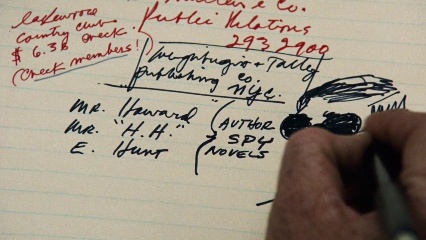 Lakewood
Country Club
$ 6.38 check.
(check members!)
Mullen & Co.
Public Relations
293 2900
Worthington & Tally
publishing co.
N.Y.C.
Mr. Howard
Mr. "H.H."
E. Hunt
AUTHOR
SPY
NOVELS